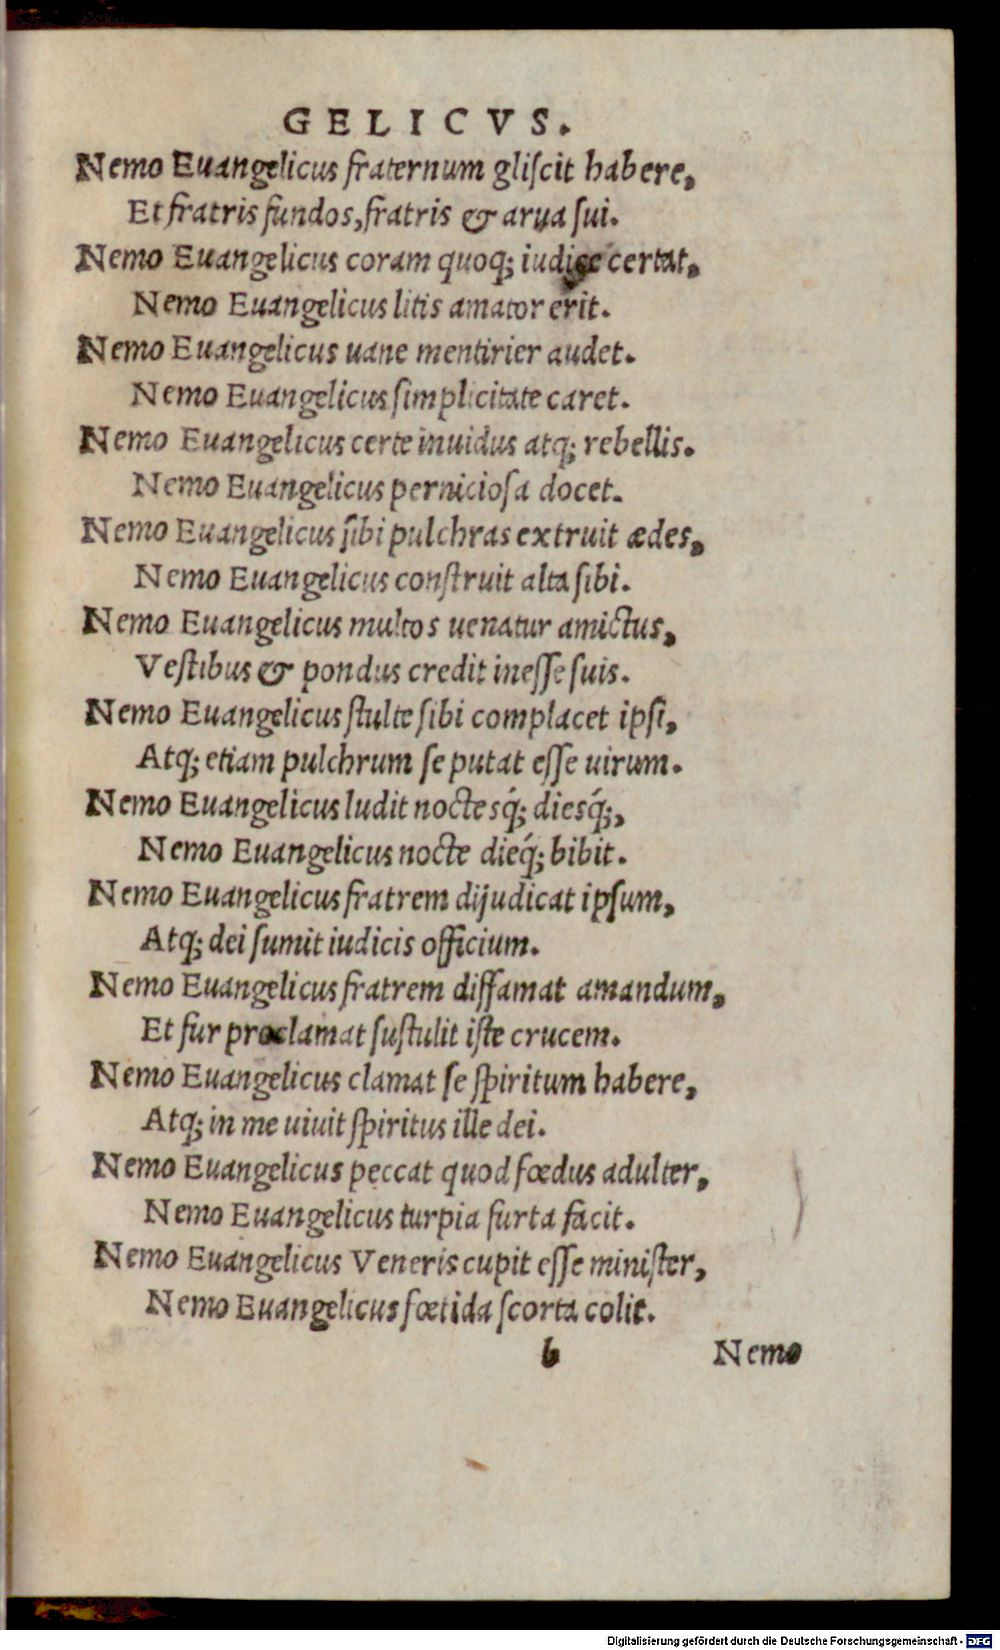 GELICVS.
Nemo Euangelicus fraternum gliſcit habere,
Et fratris fundos, fratris & arua ſui.
Nemo Euangelicus coram quoq; iudice certat,
Nemo Euangelicus litis amator erit.
Nemo Euangelicus uane mentirier audet.
Nemo Euangelicus ſimplicitate caret.
Nemo Euangelicus certe inuidus atq; rebellis.
Nemo Euangelicus pernicioſa docet.
Nemo Euangelicus ſibi pulchras extruit ædes,
Nemo Euangelicus conſtruit alta ſibi.
Nemo Euangelicus multos uenatur amictus,
Veſtibus & pondus credit ineſſe ſuis.
Nemo Euangelicus ſtulte ſibi complacet ipſi,
Atq; etiam pulchrum ſe putat eſſe uirum.
Nemo Euangelicus ludit noctesq́; diesq́;,
Nemo Euangelicus nocte dieq́; bibit.
Nemo Euangelicus fratrem dijudicat ipſum,
Atq; dei ſumit iudicis officium.
Nemo Euangelicus fratrem diffamat amandum,
Et fur proclamat ſuſtulit iſte crucem.
Nemo Euangelicus clamat ſe ſpiritum habere,
Atq; in me uiuit ſpiritus ille dei.
Nemo Euangelicus peccat quod fœdus adulter,
Nemo Euangelicus turpia furta facit.
Nemo Euangelicus Veneris cupit eſſe miniſter,
Nemo Euangelicus fœtida ſcorta colit.
b Nemo
Digitalisierung gefördert durch die Deutsche Forschungsgemeinschaft - DFG